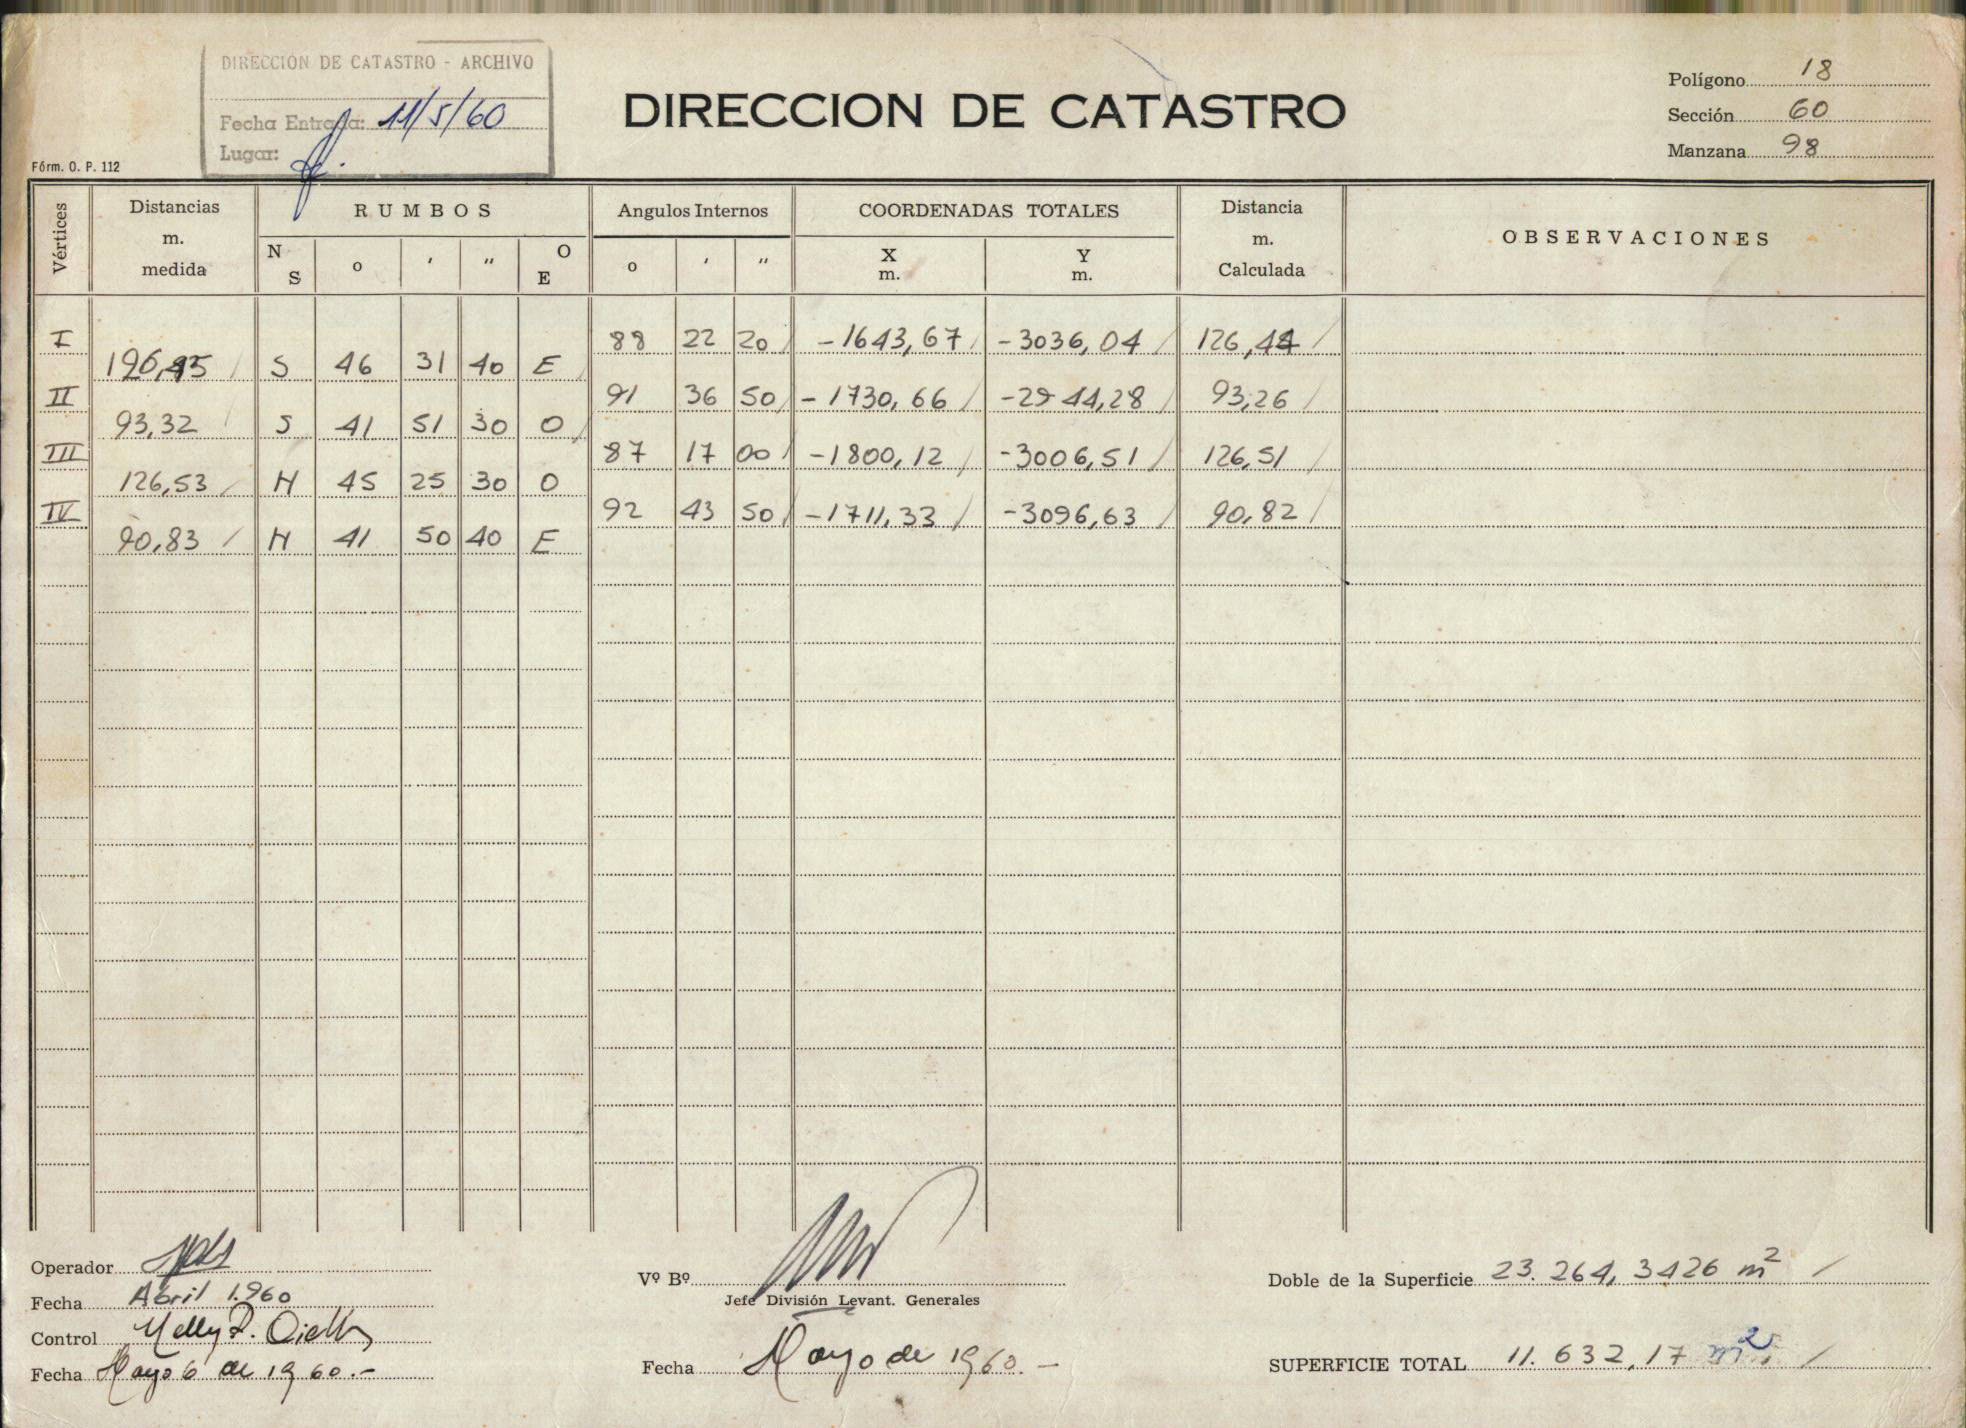 DIRECCION DE CATASTRO - ARCHIVO
Fecha Entrada: 11/5/60
Lugar:
DIRECCION DE CATASTRO
Polígono 18
Sección 60
Manzana 98
Fórm. O. P. 112
Vértices Distancias m. medida RUMBOS Angulos Internos COORDENADAS TOTALES Distancia m. Calculada OBSERVACIONES
N S o ' " O E o ' " X m. Y m.
I 88 22 20 -1643,67 -3036,04 126,44
126,45 S 46 31 40 E
II 91 36 50 -1730,66 -2944,28 93,26
93,32 S 41 51 30 O
III 87 17 00 -1800,12 -3006,51 126,51
126,53 N 45 25 30 O
IV 92 43 50 -1711,33 -3096,63 90,82
90,83 N 41 50 40 E
Operador
Fecha Abril 1.960
Control Nelly
Fecha Mayo 6 de 1960.-
Vº Bº
Jefe División Levant. Generales
Fecha Mayo de 1960.-
Doble de la Superficie 23.264,3426 m2
SUPERFICIE TOTAL 11.632,17 m2